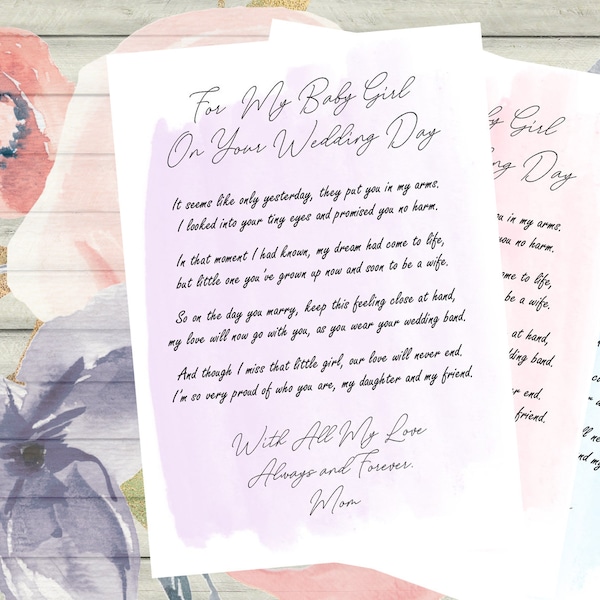 For My Baby Girl
On Your Wedding Day
It seems like only yesterday, they put you in my arms.
I looked into your tiny eyes and promised you no harm.
In that moment I had known, my dream had come to life,
but little one you've grown up now and soon to be a wife.
So on the day you marry, keep this feeling close at hand,
my love will now go with you, as you wear your wedding band.
And though I miss that little girl, our love will never end.
I'm so very proud of who you are, my daughter and my friend.
With All My Love
Always and Forever.
Mom
Girl
Day
in my arms.
no harm.
to life,
be a wife.
at hand,
band.
end.
friend.